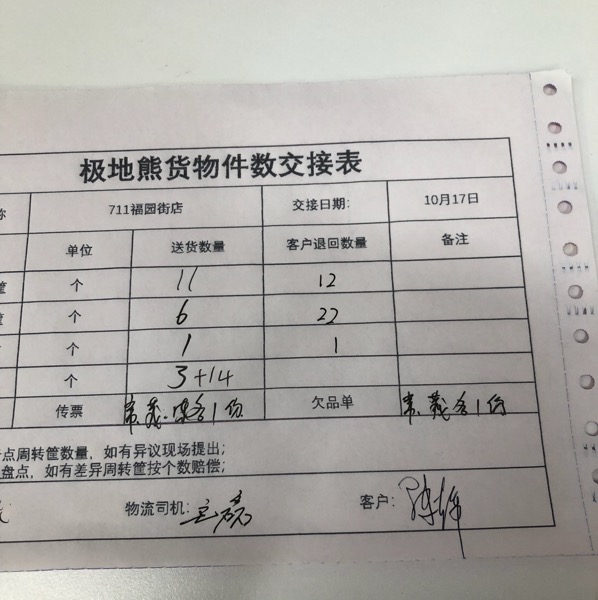 极地熊货物件数交接表
称 711福园街店 交接日期: 10月17日
单位 送货数量 客户退回数量 备注
筐 个 11 12
筐 个 6 22
个 1 1
个 3+14
传票 各1份 欠品单 各1份
点周转筐数量，如有异议现场提出；
盘点，如有差异周转筐按个数赔偿；
物流司机: 客户: